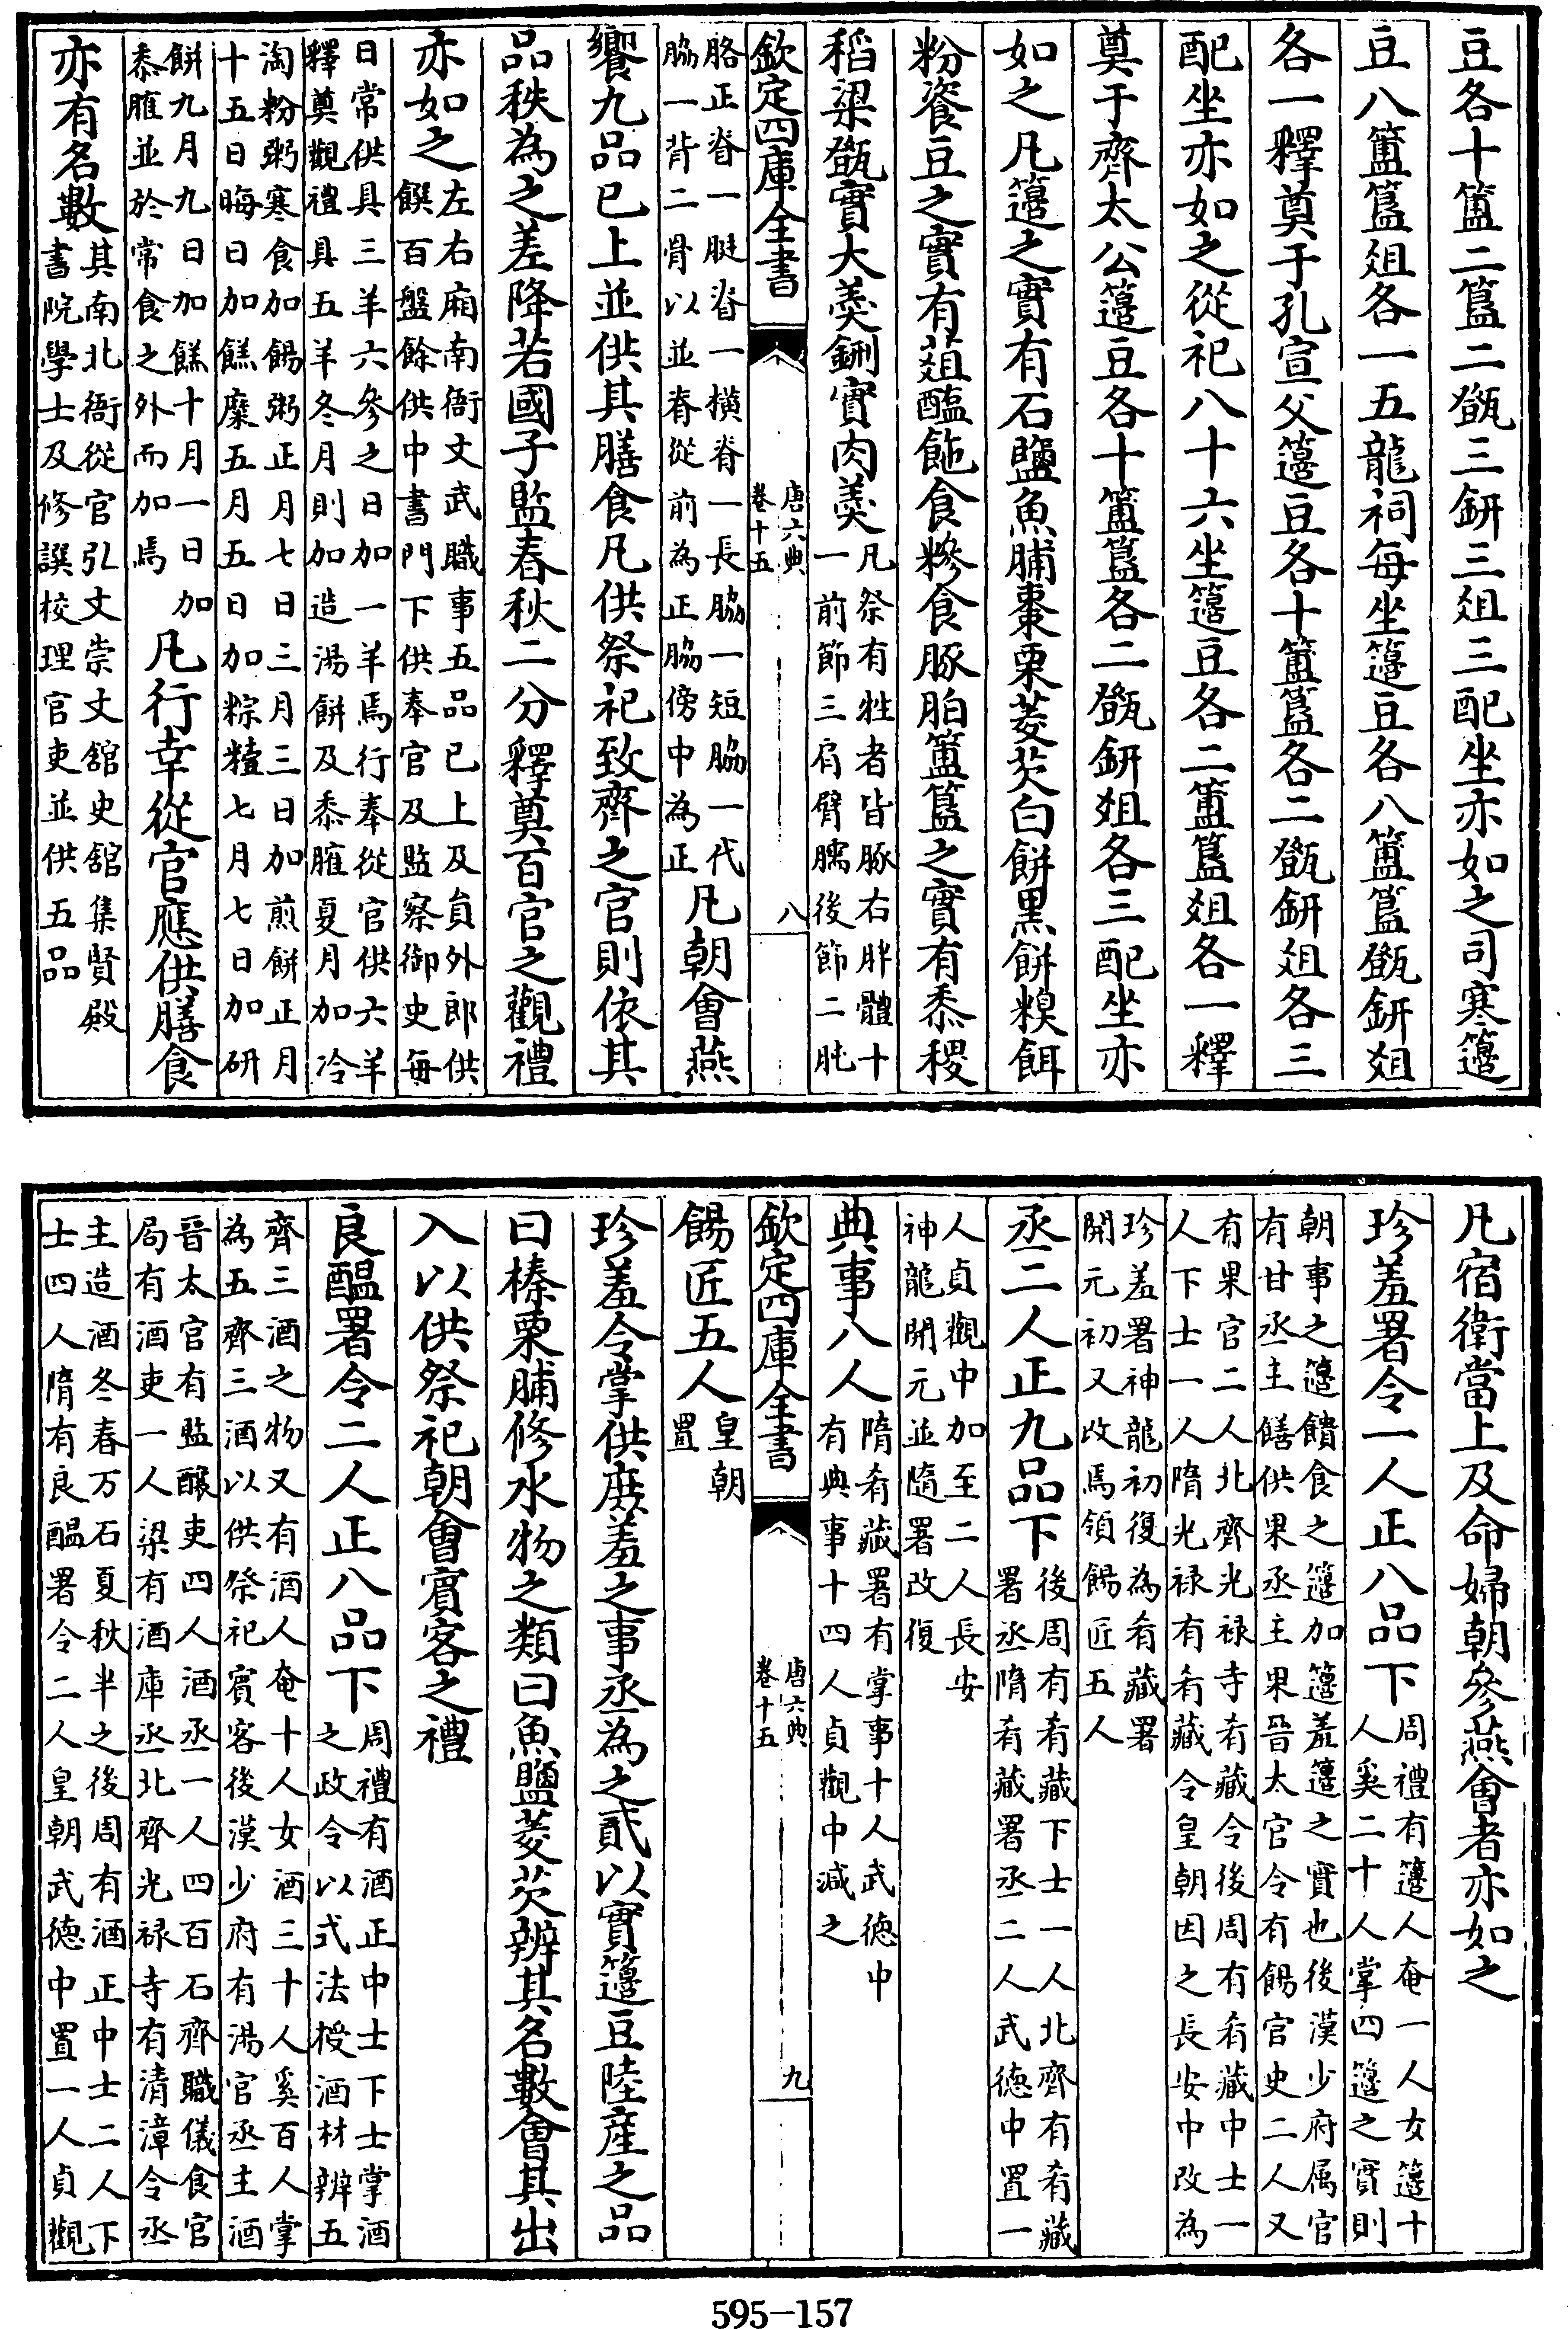 豆各十簠二簋二㽅三鈃三爼三配坐亦如之司寒籩
豆八簠簋爼各一五龍祠每坐籩豆各八簠簋㽅鈃爼
各一釋奠于孔宣父籩豆各十簠簋各二㽅鈃爼各三
配坐亦如之從祀八十六坐籩豆各二簠簋爼各一釋
奠于齊太公籩豆各十簠簋各二㽅鈃爼各三配坐亦
如之凡籩之實有石鹽魚脯棗栗菱芡白餅黒餅糗餌
粉餈豆之實有葅醢飿食糝食豚胉簠簋之實有黍稷
稻梁㽅實大羮鉶實肉羮凡祭有牲者皆豚右胖體十
一前節三肩臂臑後節二肫
胳正脊一脡脊一橫脊一長脇一短脇一代
脇一背二骨以並脊從前為正脇傍中為正凡朝會燕
欽定四庫全書
唐六典
卷十五
八
饗九品已上並供其膳食凡供祭祀致齊之官則依其
品秩為之差降若國子監春秋二分釋奠百官之觀禮
亦如之左右廂南衙文武職事五品已上及貟外郎供
饌百盤餘供中書門下供奉官及監察御史每
日常供具三羊六參之日加一羊焉行奉從官供六羊
釋奠觀禮具五羊冬月則加造湯餅及黍臛夏月加冷
淘粉粥寒食加餳粥正月七日三月三日加煎餅正月
十五日晦日加餻糜五月五日加粽䊦七月七日加斫
餅九月九日加餻十月一日加
黍臛並於常食之外而加焉凡行幸從官應供膳食
亦有名數其南北衙從官引文崇文舘史舘集賢殿
書院學士及修譔校理官吏並供五品
凡宿衛當上及命婦朝參燕會者亦如之
珍羞署令一人正八品下周禮有籩人奄一人女籩十
人奚二十人掌四籩之實則
朝事之籩饋食之籩加籩羞籩之實也後漢少府屬官
有甘丞主饍供果丞主果晉太官令有餳官史二人又
有果官二人北齊光禄寺有肴藏令後周有肴藏中士一
人下士一人隋光禄有肴藏令皇朝因之長安中改為
珍羞署神龍初復為肴藏署
開元初又改焉領餳匠五人
丞二人正九品下後周有肴藏下士一人北齊有肴藏
署丞隋肴藏署丞二人武德中置一
人貞觀中加至二人長安
神龍開元並隨署改復
典事八人隋肴藏署有掌事十人武德中
有典事十四人貞觀中減之
欽定四庫全書
唐六典
卷十五
九
餳匠五人皇朝
置
珍羞令掌供庶羞之事丞為之貳以實籩豆陸産之品
曰榛栗脯修水物之類曰魚鹽菱芡辨其名數會其出
入以供祭祀朝會賓客之禮
良醖署令二人正八品下周禮有酒正中士下士掌酒
之政令以式法授酒材辨五
齊三酒之物又有酒人奄十人女酒三十人奚百人掌
為五齊三酒以供祭祀賓客後漢少府有湯官丞主酒
晉太官有監釀吏四人酒丞一人四百石齊職儀食官
局有酒吏一人梁有酒庫丞北齊光禄寺有清漳令丞
主造酒冬春万石夏秋半之後周有酒正中士二人下
士四人隋有良醖署令二人皇朝武德中置一人貞觀
595-157